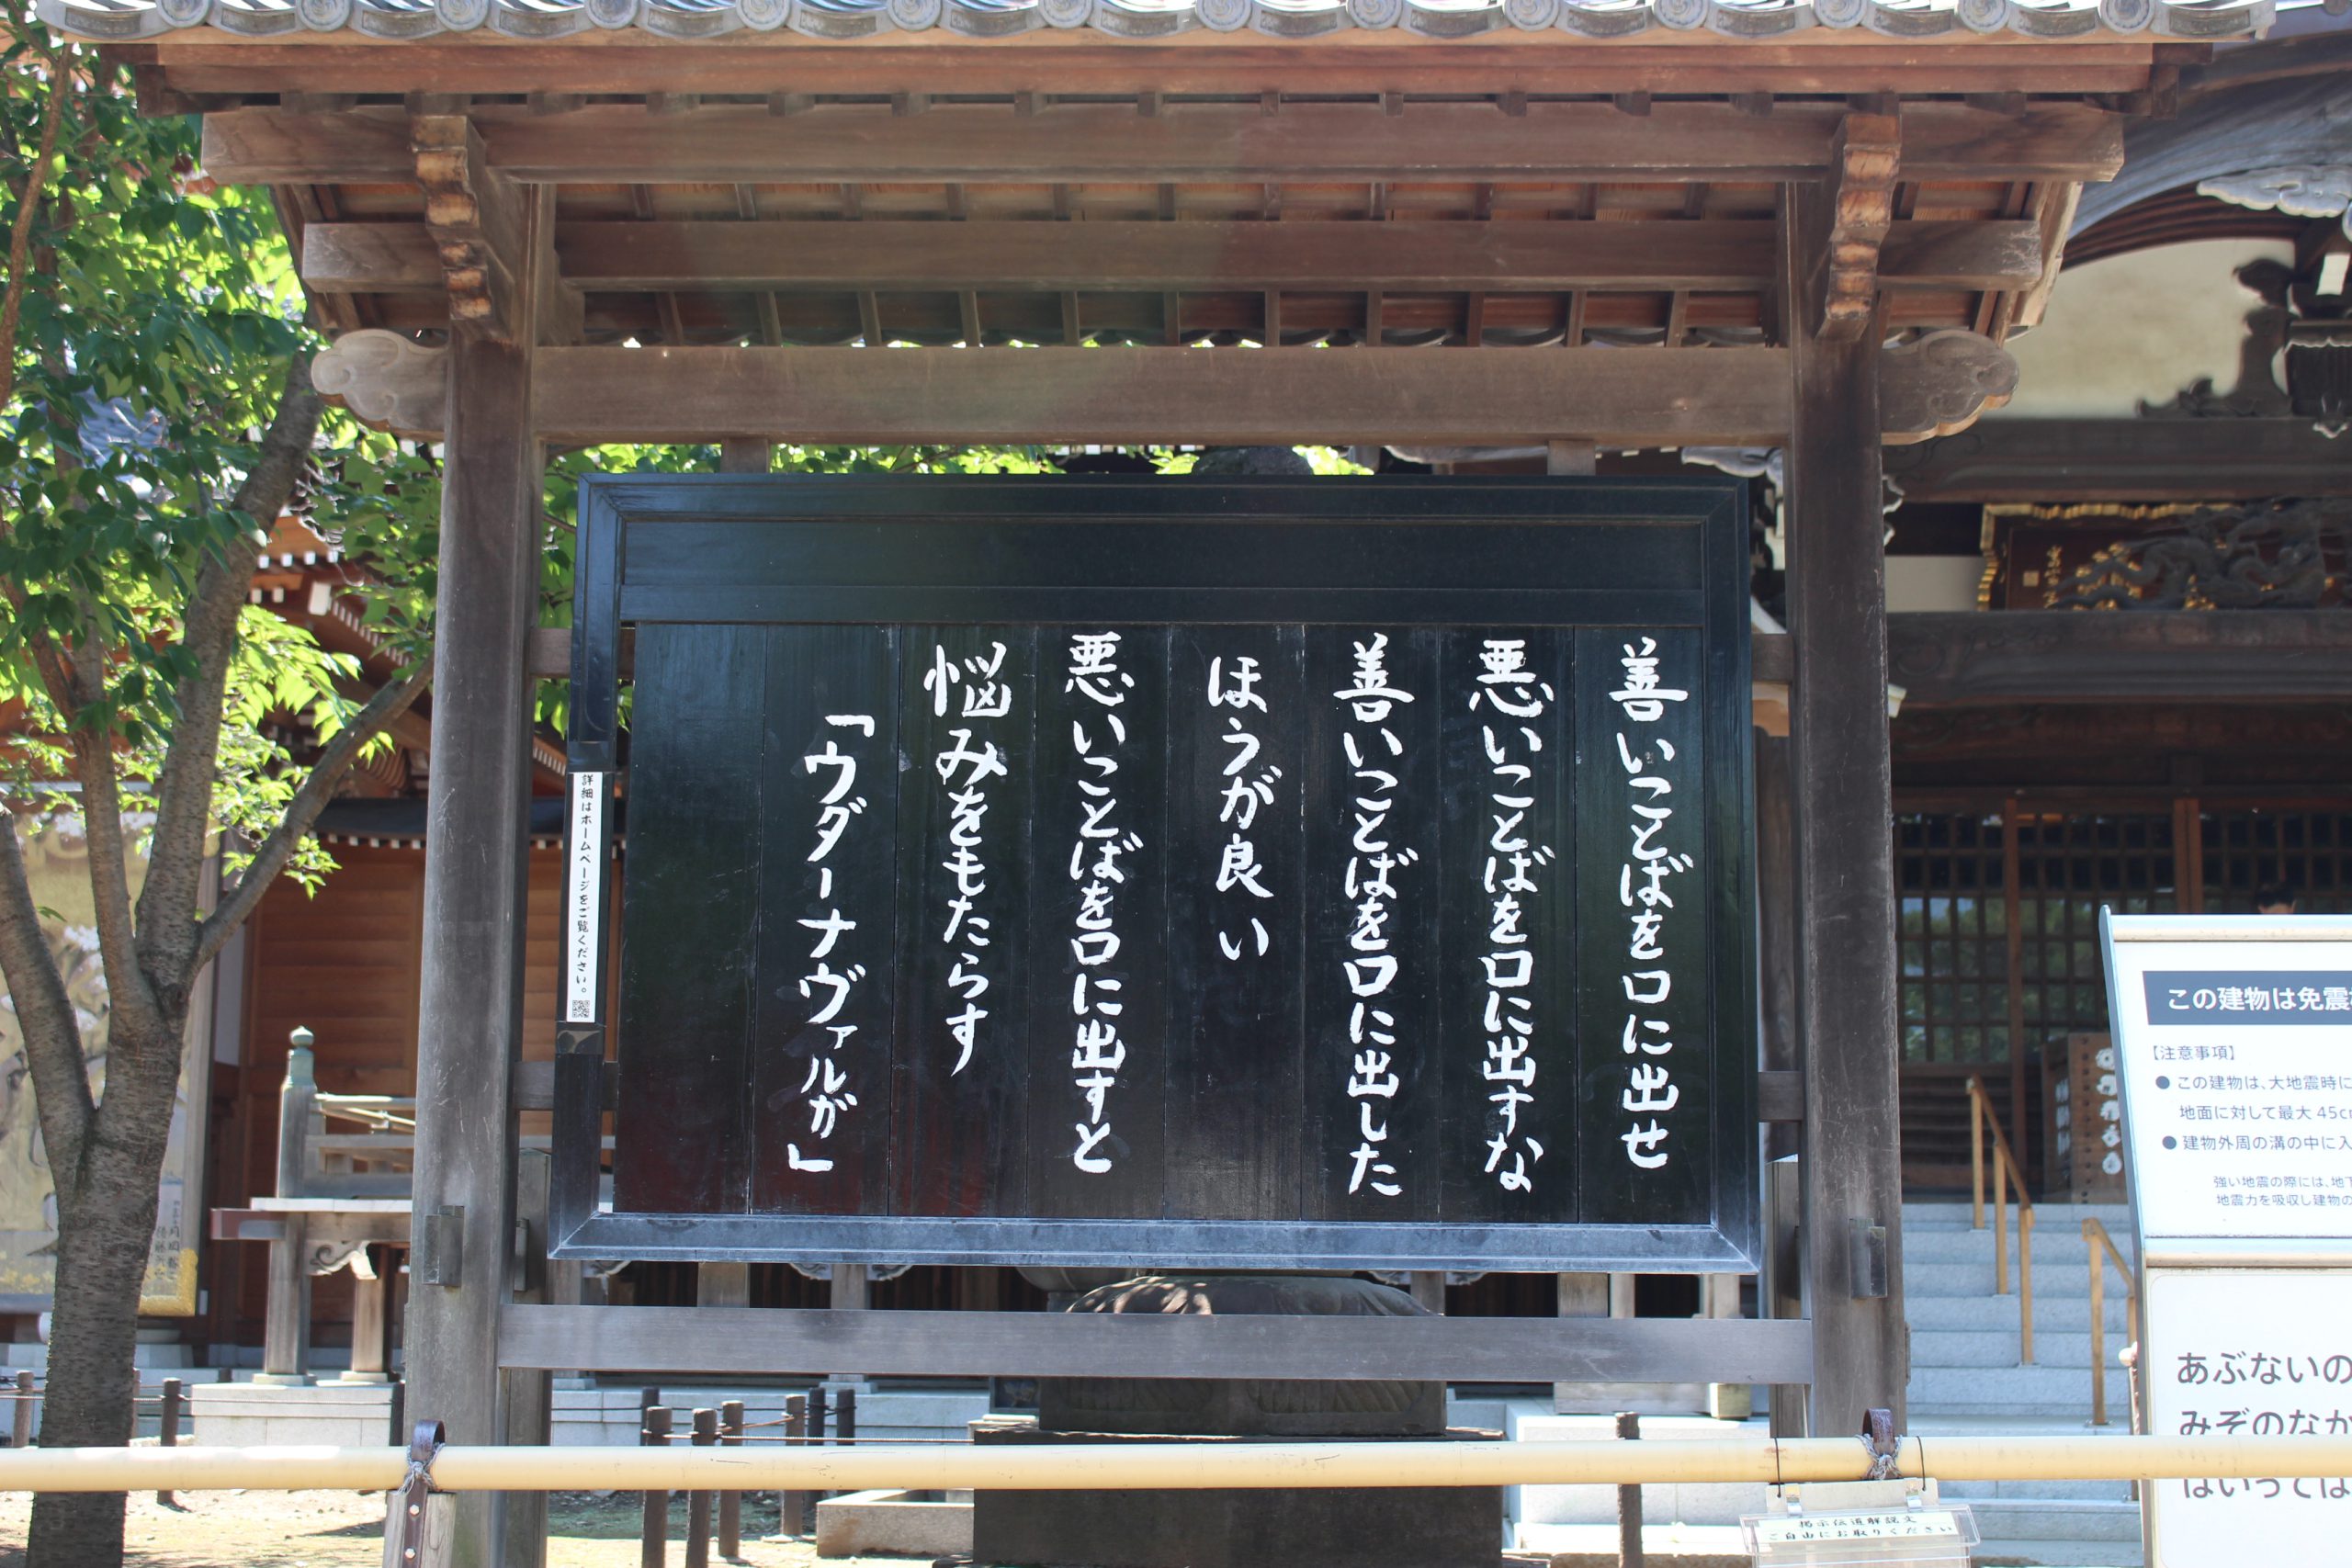 善いことばを口に出せ
悪いことばを口に出すな
善いことばを口に出した
ほうが良い
悪いことばを口に出すと
悩みをもたらす
「ウダーナヴァルガ」
詳細はホームページをご覧ください。
この建物は免震
【注意事項】
● この建物は、大地震時に
地面に対して最大 45c
● 建物外周の溝の中に入
強い地震の際には、地下
地震力を吸収し建物の
あぶないの
みぞのなか
はいっては
掲示伝道解説文
ご自由にお取りください